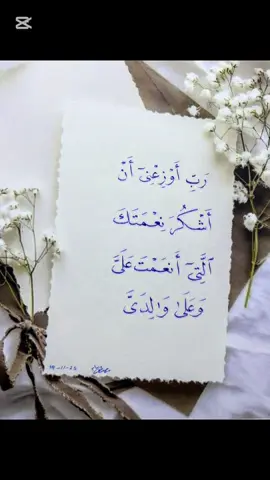 رَبِّ أَوْزِعْنِىٓ أَنْ
أَشْكُرَ نِعْمَتَكَ
ٱلَّتِىٓ أَنْعَمْتَ عَلَىَّ
وَعَلَىٰ وَٰلِدَىَّ